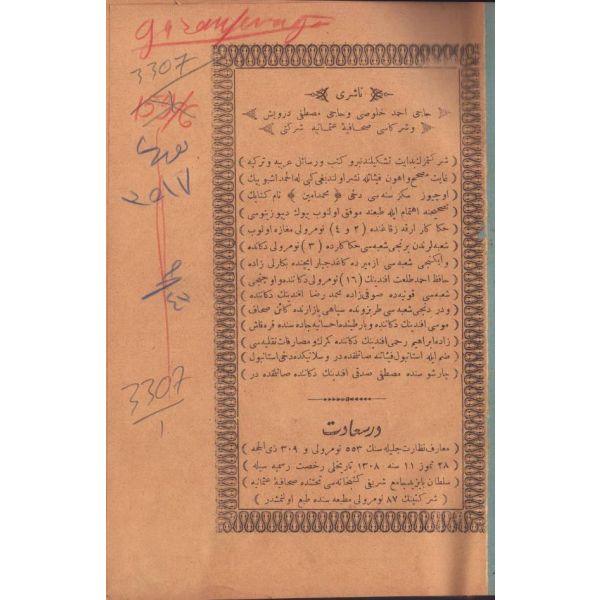 3307
ناشری
حاجی احمد خلوصی وحاجی مصطفی درویش
وشرکاسی صحافیهٔ عثمانیه شرکتی
شرکتمزك بدایت تشکیلندنبرو کتب ورسائل عربیه وترکیه
غایت مصحح واهون فیئاتله نشر اولندیغی کبی له الحمد اشبو بیك
اوچیوز سکز سنه سی دخی ﴿ محمد امین ﴾ نام کتابك
تصحیحنه اهتمام ایله طبعنه موفق اولنوب بیوك دیپوزیتوسی
حکاکار ارقه زقاغنده ( ٢ و ٤ ) نومرولی مغازه اولوب
شعبه لرندن برنجی شعبه سی حکاکارده ( ٣ ) نومرولی دکانده
وایکنجی شعبه سی ازمیرده کاغدجیلر ایچنده بکارلی زاده
حافظ احمد طلعت افندینك (١٦) نومرولی دکاننده واوچنجی
شعبه سی قونیه ده صوفی زاده محمد رضا افندینك دکاننده
ودردنجی شعبه سی طربزونده سپاهی بازارنده کائن صحاف
موسی افندینك دکاننده وبارطینده احسانیه جاده سنده قره قاش
زاده ابراهیم رحمی افندینك دکاننده کمرك ومصارفات نقلیه سی
ضم ایله استانبول فیئاتنه صاتلمقده در وسلانیکده دخی استانبول
چارشو سنده مصطفی صدقی افندینك دکاننده صاتلمقده در
درسعادت
معارف نظارت جلیله سنك ٥٥٣ نومرولی و ٣٠٩ ذی الحجه
٢٨ تموز ١١ سنه ١٣٠٨ تاریخلی رخصت رسمیه سیله
سلطان بایزید جامع شریفی کتبخانه سی تحتنده صحافیهٔ عثمانیه
شرکتینك ٨٧ نومرولی مطبعه سنده طبع اولنمشدر
3307
1